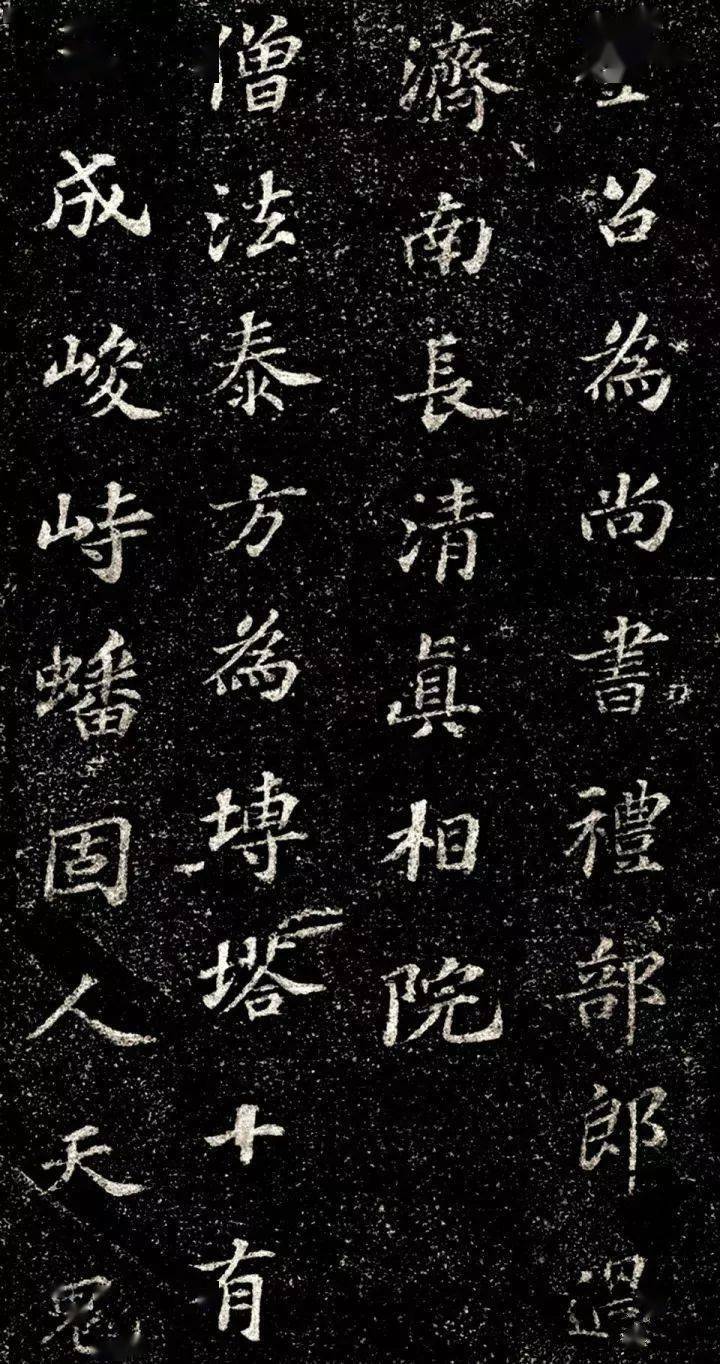 召為尚書禮部郎過
濟南長清真相院
僧法泰方為塼塔十有
成峻峙蟠固人天鬼